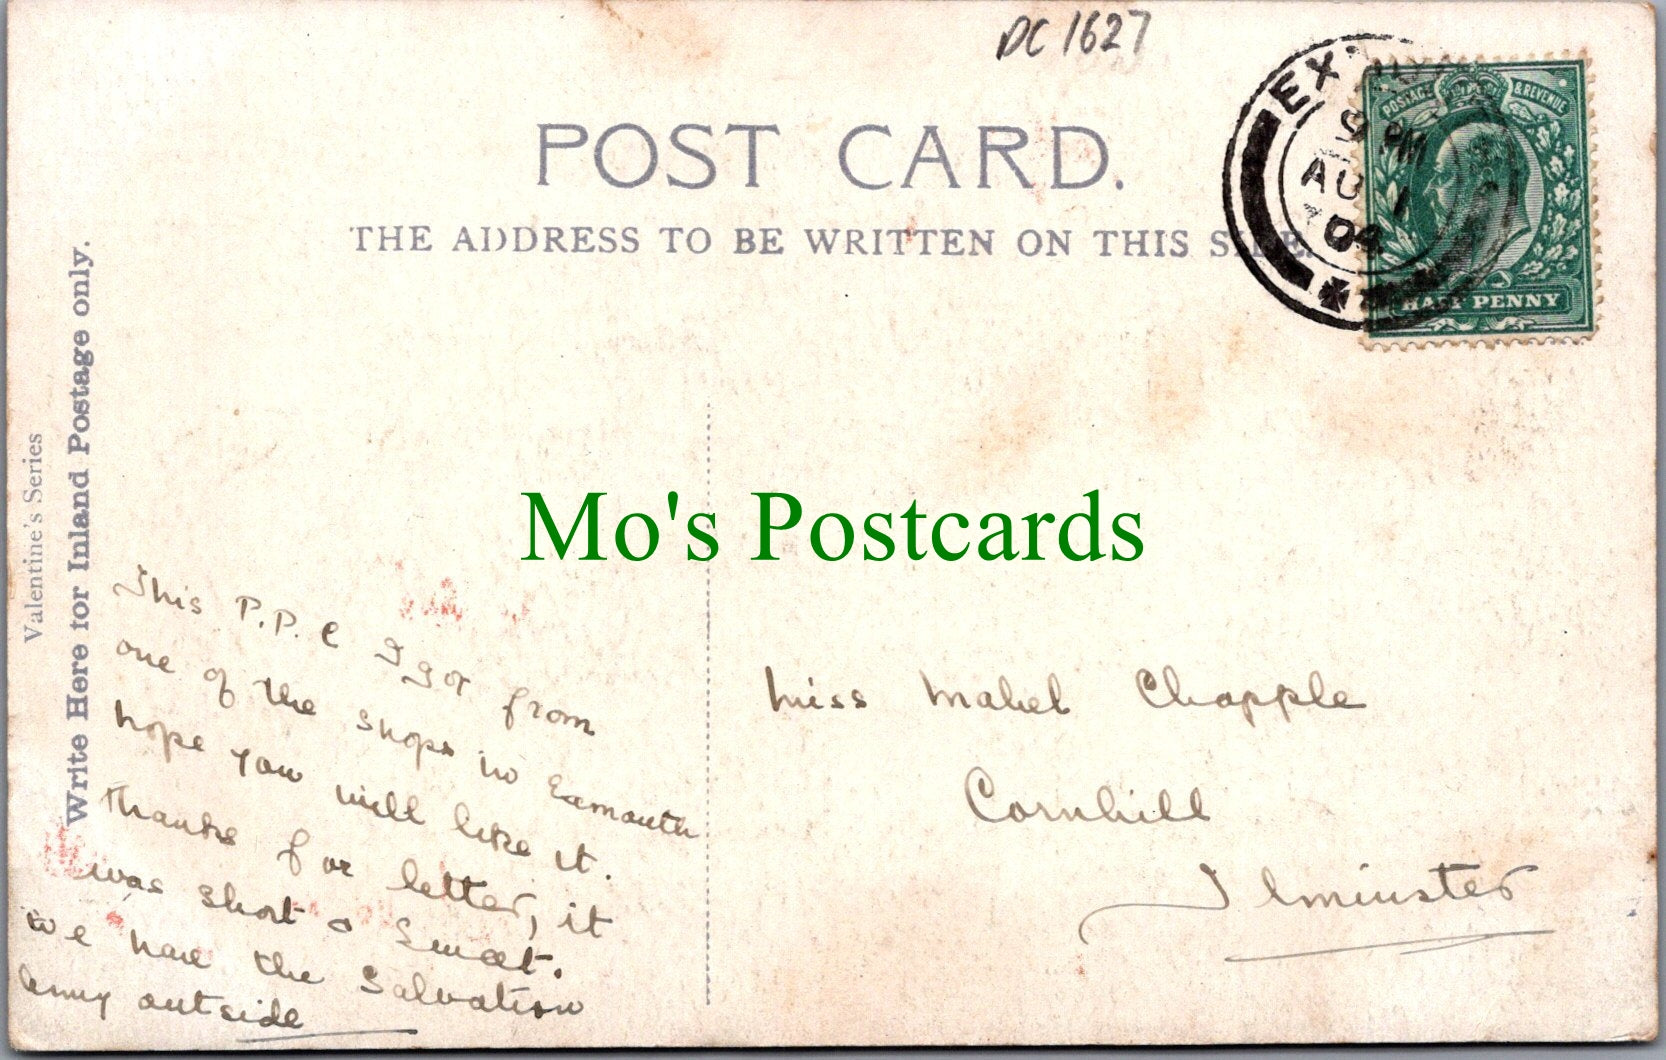 DC 1627
POST CARD.
THE ADDRESS TO BE WRITTEN ON THIS SIDE.
POSTAGE & REVENUE
HALF PENNY
9 PM
AU 1
04
Valentine's Series
Write Here for Inland Postage only.
Mo's Postcards
This P.P.C I got from
one of the shops in Exmouth
hope you will like it.
Thanks for letter, it
was short & sweet.
we have the Salvation
army outside
Miss Mabel Chapple
Cornhill
Ilminster